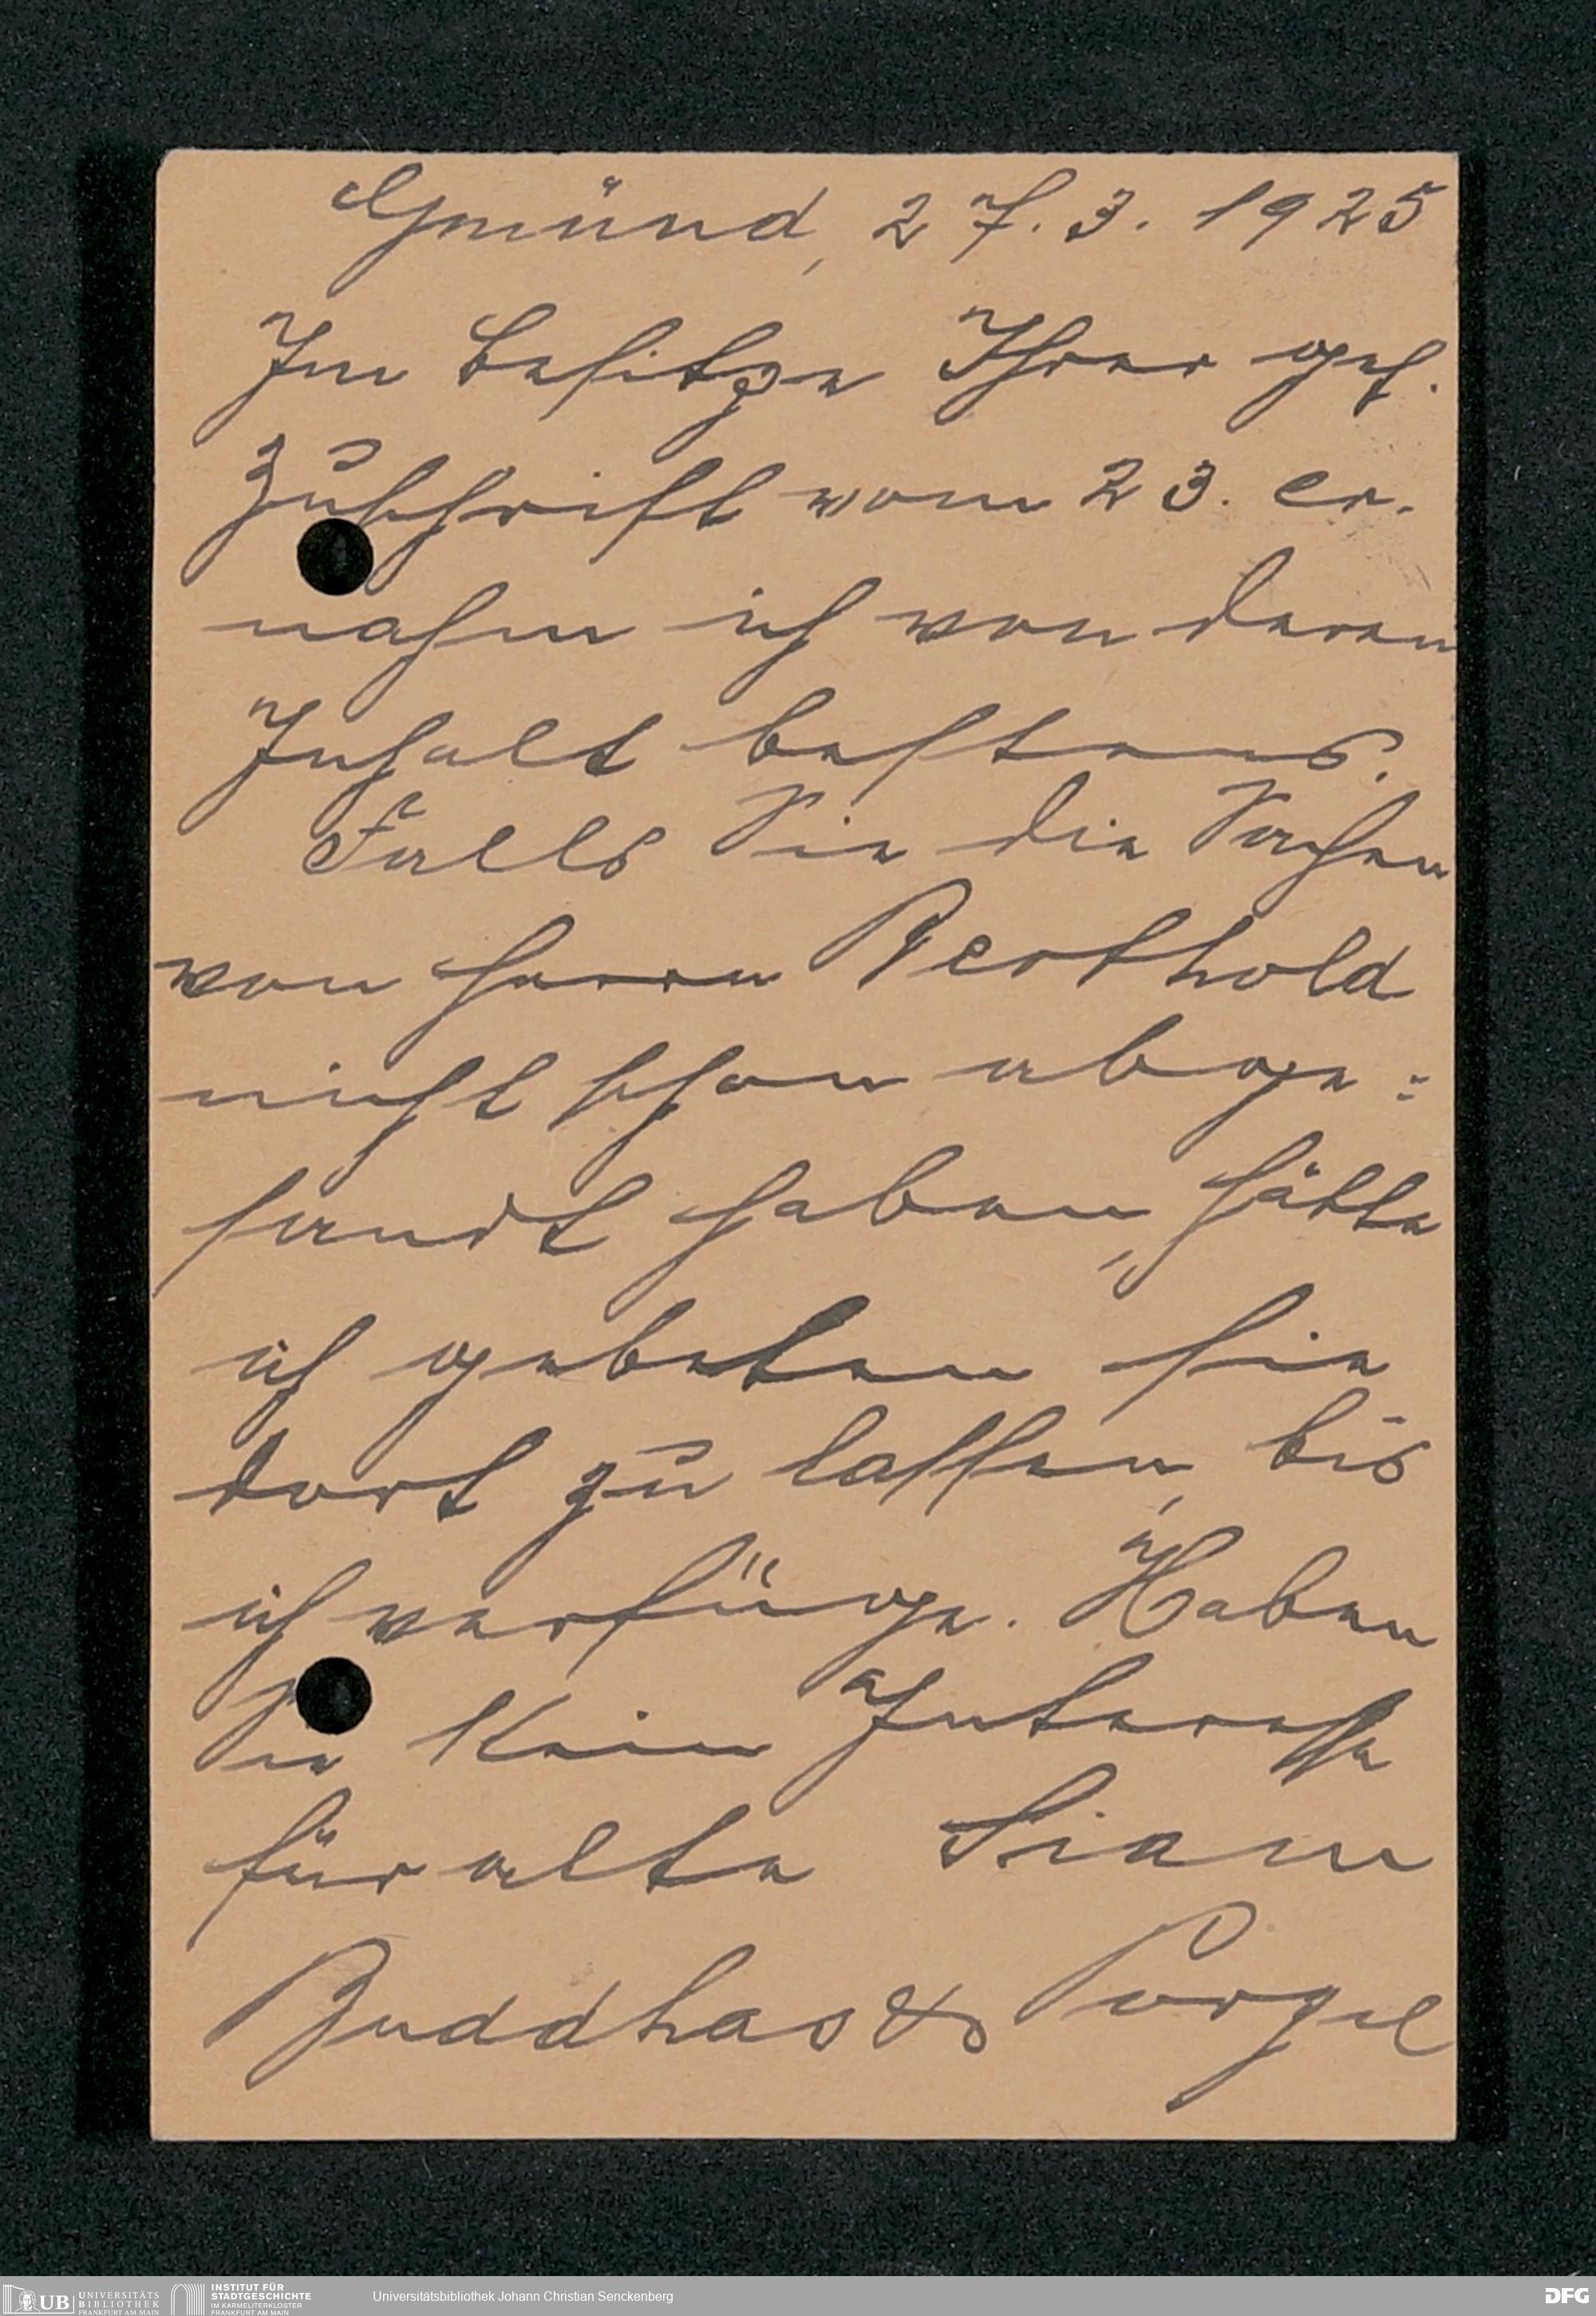 Gmünd, 27. 3. 1925
Im Besitze Ihrer gef.
Zuschrift vom 23. cr.
nahm ich von deren
Inhalt bestens.
Falls Sie die Sachen
von Herrn Berthold
nicht schon abge:
sandt haben, hätte
ich gebeten sie
dort zu lassen, bis
ich verfüge. Haben
Sie kein Interesse
für alte Siam
Buddhas &
UB UNIVERSITÄTS
BIBLIOTHEK
FRANKFURT AM MAIN
INSTITUT FÜR
STADTGESCHICHTE
IM KARMELITERKLOSTER
FRANKFURT AM MAIN
Universitätsbibliothek Johann Christian Senckenberg
DFG